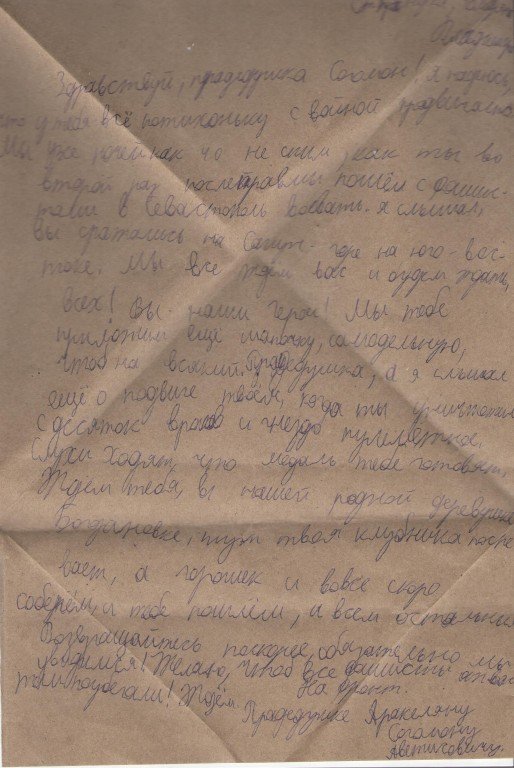 Здравствуй, прадедушка Согомон! Я надеюсь,
что у тебя всё потихоньку с войной продвигается.
Мы уже ночей как не спим, как ты во
второй раз после травмы пошёл с фашис-
тами в Севастополь воевать. Я слышал,
вы сражались на Сапун-горе на юго-вос-
токе. Мы все ждём вас и будем ждать,
всех! Вы - наши герои! Мы тебе
приложим ещё шапочку, самодельную,
чтоб на всякий. Прадедушка, а я слышал
ещё о подвиге твоём, когда ты уничтожил
с десяток врагов и гнездо пулемётное.
Слухи ходят, что медаль тебе готовят.
Ждём тебя, в нашей родной деревушке
Богдановке, тут твоя клубника поспе-
вает, а горошек и вовсе скоро
соберём, и тебе пошлём, и всем остальным
Возвращайтесь поскорее, обязательно мы
увидимся! Желаю, чтоб все фашисты
поубегали! Ждём.
На фронт.
Прадедушке Аракеляну
Согомону
Аветиковичу.